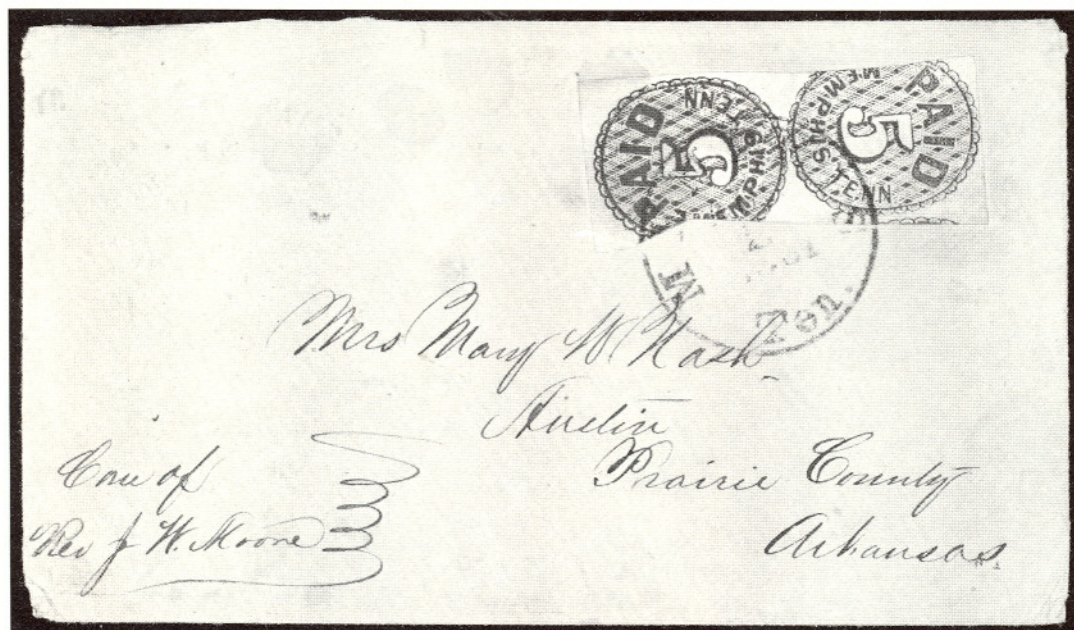 PAID
5
MEMPHIS TENN
PAID
5
MEMPHIS, TENN
M
Ten.
Mrs Mary W Nash
Austin
Prairie County
Arkansas.
Care of
Rev J W. Moore